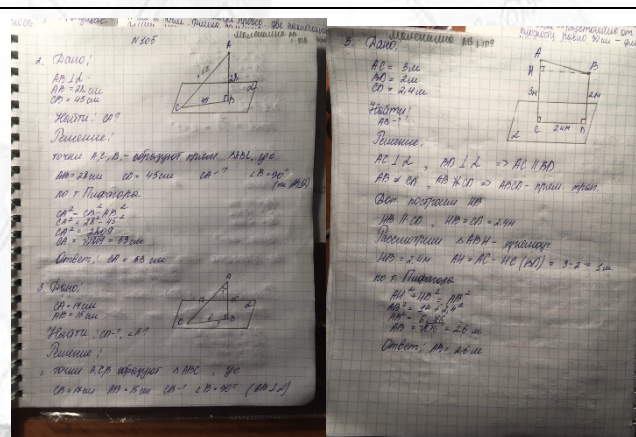 N 105
2. Дано:
AB ⊥ α
AB = 28 см
CB = 45 см
Найти: CA?
Решение:
точки A, C, B, - образуют прям. ΔABC, где
AB = 28 см CB = 45 см CA - ? ∠B = 90°
по т. Пифагора
CA² = CB² - AB²
CA² = 28² - 45²
CA² = 2809
CA = √2809 = 53 см
Ответ: CA = 53 см
3 Дано:
CA = 17 см
AB = 15 см
Найти: CB - ?, ∠A?
Решение:
1. точки A, C, B образуют ΔABC, где
CB = 17 см AB = 15 см CB - ? ∠B = 90° (AB ⊥ α)
A
28
45
C
B
α
A
C
B
3. Дано:
AC = 3 м
BD = 2 м
CD = 2,4 м
Найти:
AB - ?
Решение:
AC ⊥ α, BD ⊥ α => AC ∥ BD
AB ≠ CD, AB ∦ CD => ABCD - прям. трап.
Доп. построим HB
HB ∥ CD, HB = CD = 2,4 м
Рассмотрим ΔABH - прямоуг.
HB = 2,4 м AH = AC - HC (BD) = 3 - 2 = 1 м
по т. Пифагора
AH² + HB² = AB²
AB² = 1² + 2,4²
AB² = 6,76
AB = √6,76 = 2,6 м
Ответ: AB = 2,6 м
A
H
B
3м
2м
C
2,4м
D
α